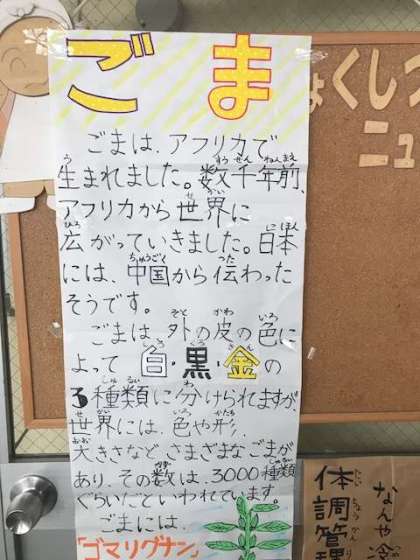 ごま
ごまは、アフリカで
生まれました。数千年前、
アフリカから世界に
広がっていきました。日本
には、中国から伝わった
そうです。
ごまは、外の皮の色に
よって白・黒・金の
3種類に分けられますが、
世界には、色や形、
大きさなど、さまざまなごまが
あり、その数は、3000種類
ぐらいだといわれています。
ごまには、
「ゴマリグナン」
ょくしつ
ニュ
なんや
体調管理